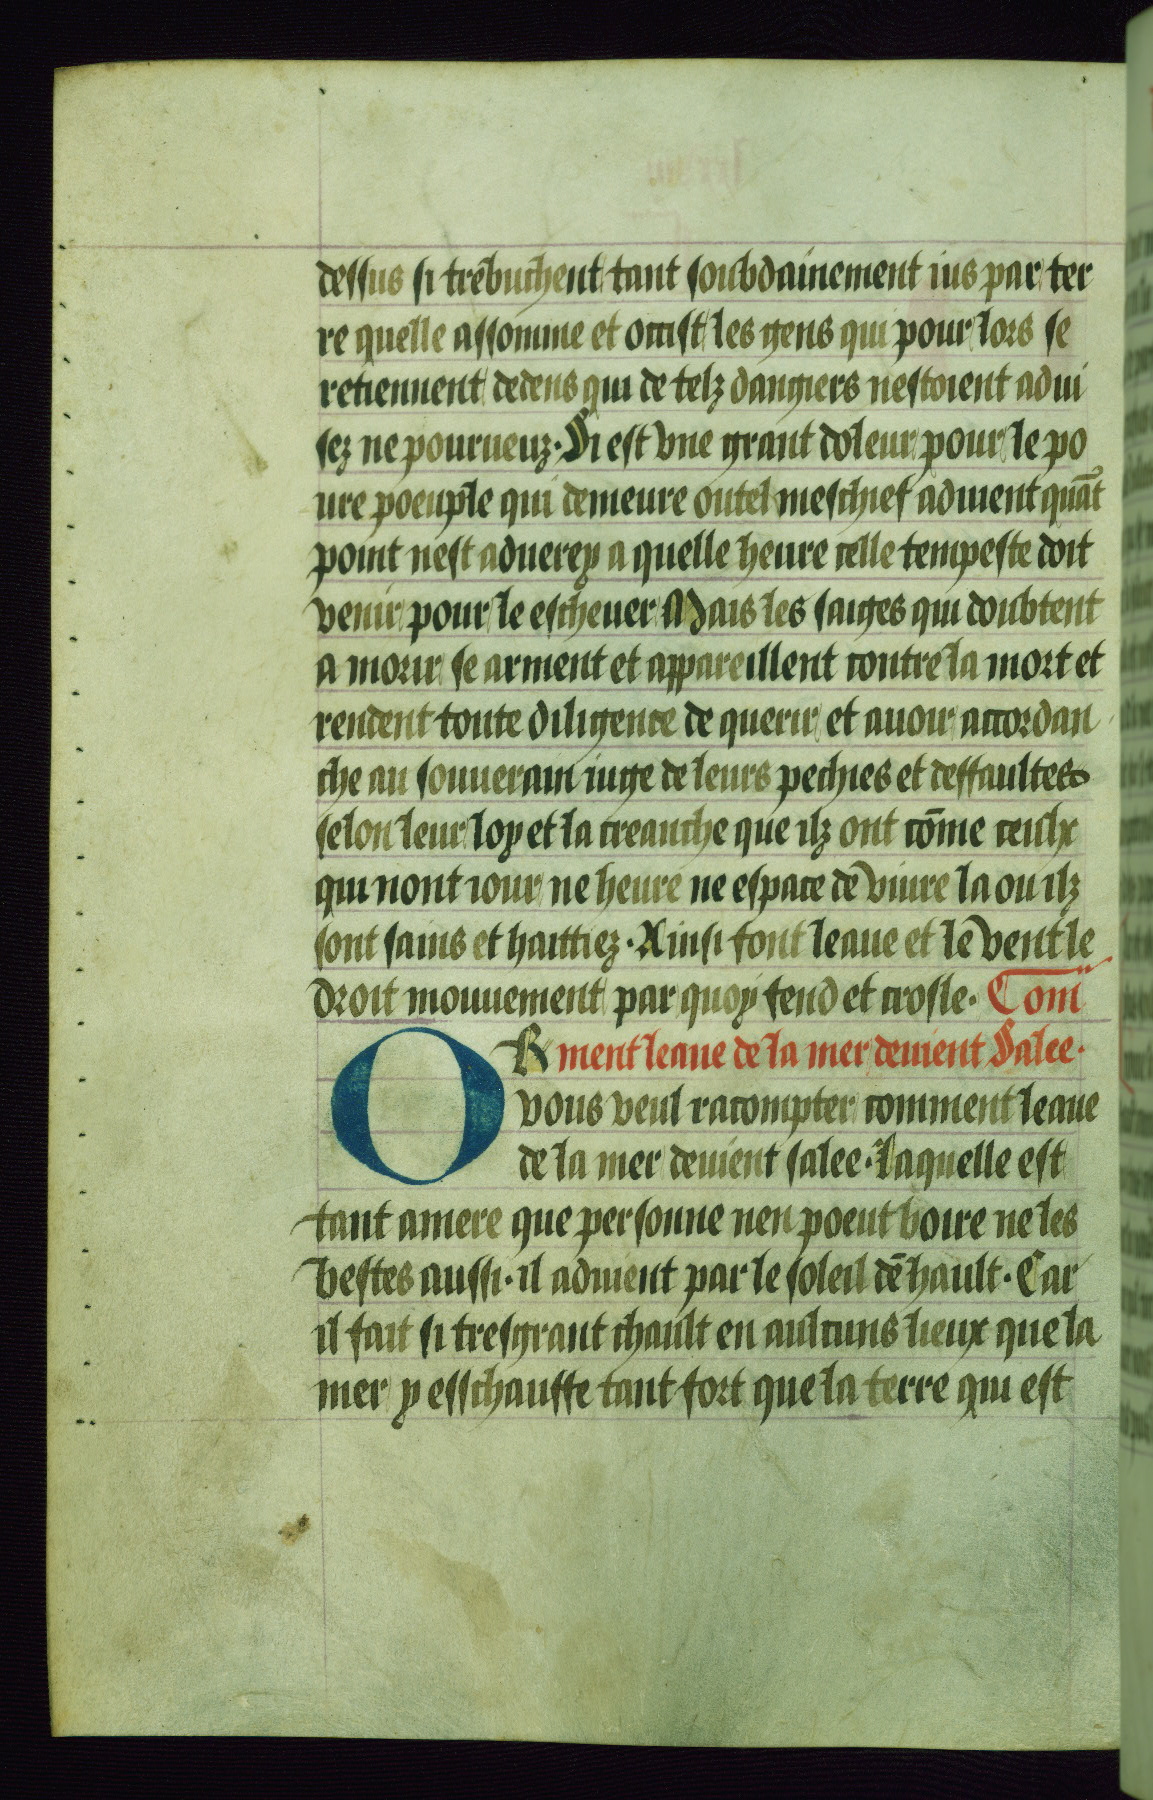 dessus si tresbuchent tant soubdainement ius par ter
re quelle assomme et occist les gens qui pour lors se
retiennent dedens qui de telz dangiers nestoient adui
sez ne pourueuz. Si est vne grant doleur pour le po
ure poeuple qui demeure ou tel meschief aduient quāt
point nest aduerey a quelle heure celle tempeste doit
venir pour le escheuer Mais les saiges qui doubtent
a morir se arment et appareillent contre la mort et
rendent toute diligence de querir et auoir accordan
che au souuerain iuge de leurs pechies et deffaultes
selon leur loy et la creanche que ilz ont cōme ceulx
qui nont iour ne heure ne espace de viure la ou ilz
sont sains et haittiez. Ainsi font leaue et le vent le
droit mouuement par quoy fend et crosle. Com̄
OR ment leaue de la mer deuient Salee.
vous veul racompter comment leaue
de la mer deuient salee. laquelle est
tant amere que personne nen poeut boire ne les
bestes aussi. il aduient par le soleil de hault. Car
il fait si tresgrant chault en aulcuns lieux que la
mer y esschauffe tant fort que la terre qui est